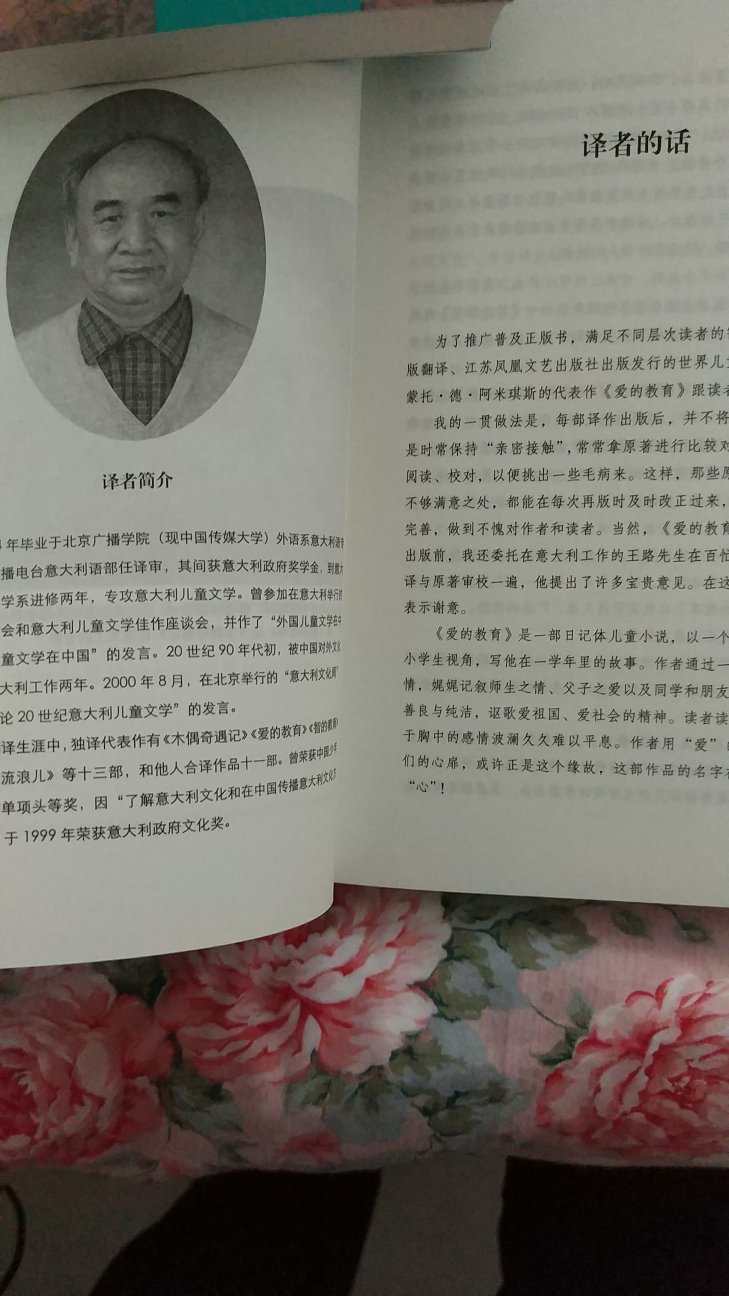 译者简介
年毕业于北京广播学院（现中国传媒大学）外语系意大利语
播电台意大利语部任译审，其间获意大利政府奖学金，到意
学系进修两年，专攻意大利儿童文学。曾参加在意大利举行的
会和意大利儿童文学佳作座谈会，并作了“外国儿童文学在中
童文学在中国”的发言。20世纪90年代初，被中国对外文
大利工作两年。2000年8月，在北京举行的“意大利文化周”
论20世纪意大利儿童文学”的发言。
译生涯中，独译代表作有《木偶奇遇记》《爱的教育》《智的教育》
流浪儿》等十三部，和他人合译作品十一部。曾荣获中国少年
单项头等奖，因“了解意大利文化和在中国传播意大利文化方
于1999年荣获意大利政府文化奖。
译者的话
为了推广普及正版书，满足不同层次读者的
版翻译、江苏凤凰文艺出版社出版发行的世界儿
蒙托·德·阿米琪斯的代表作《爱的教育》跟读者
我的一贯做法是，每部译作出版后，并不将
是时常保持“亲密接触”，常常拿原著进行比较对
阅读、校对，以便挑出一些毛病来。这样，那些原
不够满意之处，都能在每次再版时及时改正过来，
完善，做到不愧对作者和读者。当然，《爱的教育
出版前，我还委托在意大利工作的王路先生在百忙
译与原著审校一遍，他提出了许多宝贵意见。在这
表示谢意。
《爱的教育》是一部日记体儿童小说，以一个
小学生视角，写他在一学年里的故事。作者通过一
情，娓娓记叙师生之情、父子之爱以及同学和朋友
善良与纯洁，讴歌爱祖国、爱社会的精神。读者读
于胸中的感情波澜久久难以平息。作者用“爱”的
们的心扉，或许正是这个缘故，这部作品的名字
“心”！